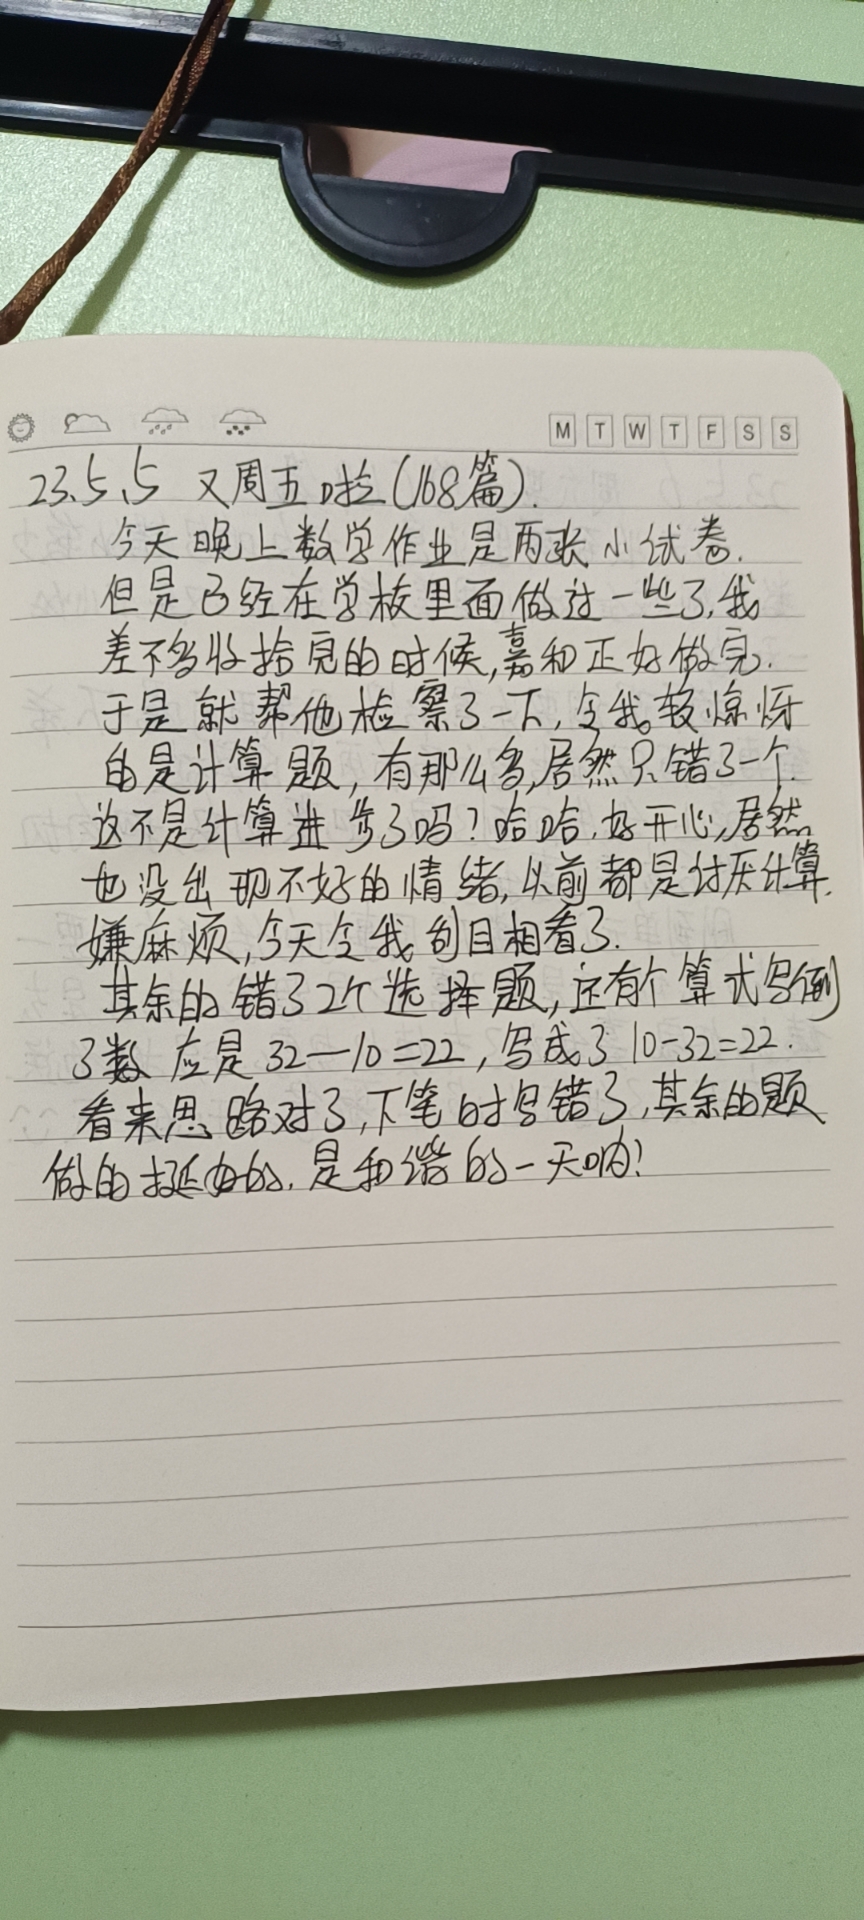 M T W T F S S
23.5.5 又周五啦(168篇).
今天晚上数学作业是两张小试卷.
但是已经在学校里面做过一些了,我
差不多收拾完的时候,嘉和正好做完.
于是就帮他检察了一下,令我较惊讶
的是计算题,有那么多,居然只错了一个.
这不是计算进步了吗?哈哈.好开心,居然
也没出现不好的情绪,以前都是讨厌计算.
嫌麻烦,今天令我刮目相看了.
其余的错了2个选择题,还有个算式写倒
了数应是32—10=22,写成了10-32=22.
看来思路对了,下笔时写错了,其余的题
做的挺好的.是和谐的一天呐!